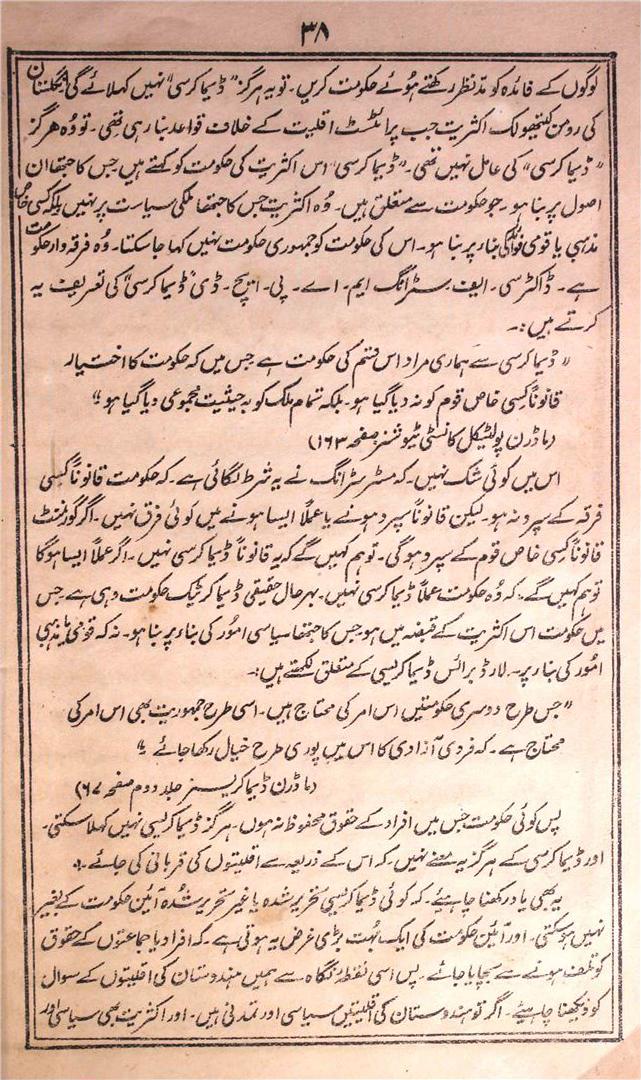 ۳۸
لوگوں کے فائدہ کو مدنظر رکھتے ہوئے حکومت کریں۔ تو یہ ہرگز "ڈیما کرسی" نہیں کہلائے گی انگلستان
کی رومن کیتھولک اکثریت جب پراٹسٹنٹ اقلیت کے خلاف قواعد بنا رہی تھی۔ تو وہ ہرگز
"ڈیما کرسی" کی عامل نہیں تھی۔ "ڈیما کرسی" اس اکثریت کی حکومت کو کہتے ہیں جس کا جتھا ان
اصول پر بنا ہو۔ جو حکومت سے متعلق ہیں۔ وہ اکثریت جس کا جتھا ملکی سیاست پر نہیں بلکہ کسی خاص
مذہبی یا قومی فوائد کی بناء پر بنا ہو۔ اس کی حکومت کو جمہوری حکومت نہیں کہا جا سکتا۔ وہ فرقہ وار حکومت
ہے۔ ڈاکٹر سی۔ ایف۔ سٹرانگ ایم۔ اے۔ پی۔ ایچ۔ ڈی "ڈیما کرسی" کی تعریف یہ
کرتے ہیں:۔
"ڈیما کرسی سے ہماری مراد اس قسم کی حکومت ہے جس میں کہ حکومت کا اختیار
قانوناً کسی خاص قوم کو نہ دیا گیا ہو۔ بلکہ تمام ملک کو بہ حیثیت مجموعی دیا گیا ہو۔"
(ماڈرن پولیٹیکل کانسٹی ٹیوشنز صفحہ ۱۶۳)
اس میں کوئی شک نہیں۔ کہ مسٹر سٹرانگ نے یہ شرط لگائی ہے۔ کہ حکومت قانوناً کسی
فرقہ کے سپرد نہ ہو۔ لیکن قانوناً سپرد ہونے یا عملاً ایسا ہونے میں کوئی فرق نہیں۔ اگر گورنمنٹ
قانوناً کسی خاص قوم کے سپرد ہوگی۔ تو ہم کہیں گے کہ یہ قانوناً ڈیما کرسی نہیں۔ اگر عملاً ایسا ہوگا
تو ہم کہیں گے۔ کہ وہ حکومت عملاً ڈیما کرسی نہیں۔ بہرحال حقیقی ڈیما کریٹک حکومت وہی ہے جس
میں حکومت اس اکثریت کے قبضہ میں ہو جس کا جتھا سیاسی امور کی بناء پر بنا ہو۔ نہ کہ قومی یا مذہبی
امور کی بناء پر۔ لارڈ برائس ڈیما کریسی کے متعلق لکھتے ہیں:۔
"جس طرح دوسری حکومتیں اس امر کی محتاج ہیں۔ اسی طرح جمہوریت بھی اس امر کی
محتاج ہے۔ کہ فردی آزادی کا اس میں پوری طرح خیال رکھا جائے۔"
(ماڈرن ڈیما کریسیز جلد دوم صفحہ ۶۷)
پس کوئی حکومت جس میں افراد کے حقوق محفوظ نہ ہوں۔ ہرگز ڈیما کریسی نہیں کہلا سکتی۔
اور ڈیما کرسی کے ہرگز یہ معنے نہیں۔ کہ اس کے ذریعہ سے اقلیتوں کی قربانی کی جائے۔
یہ بھی یاد رکھنا چاہیئے۔ کہ کوئی ڈیما کریسی تحریر شدہ یا غیر تحریر شدہ آئین حکومت کے بغیر
نہیں ہو سکتی۔ اور آئین حکومت کی ایک بہت بڑی غرض یہ ہوتی ہے۔ کہ افراد یا جماعتوں کے حقوق
کو تلف ہونے سے بچایا جائے۔ پس اسی نقطۂ نگاہ سے ہمیں ہندوستان کی اقلیتوں کے سوال
کو دیکھنا چاہیئے۔ اگر تو ہندوستان کی اقلیتیں سیاسی اور تمدنی ہیں۔ اور اکثریت بھی سیاسی اور